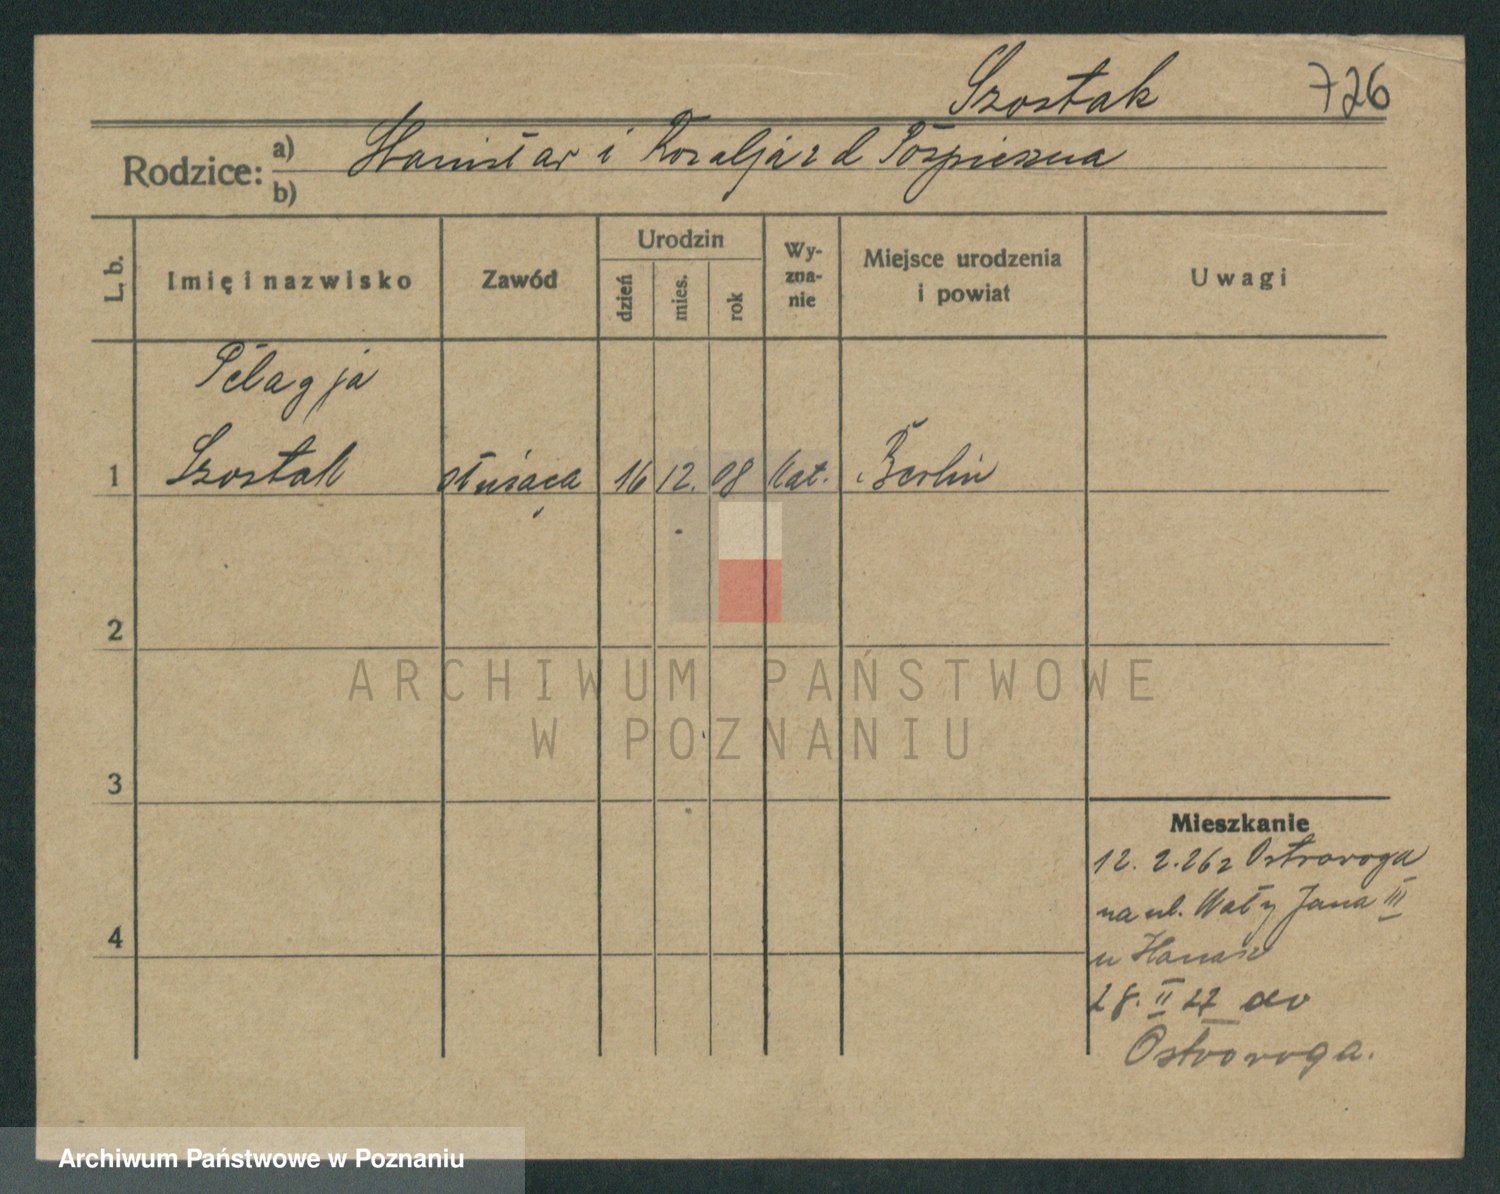 Szostak 726
Rodzice: a) Stanisław i Rozalja z d Pospieszna
b)
L. b.
Imię i nazwisko
Zawód
Urodzin
dzień
mies.
rok
Wy-
zna-
nie
Miejsce urodzenia
i powiat
Uwagi
Pelagja
1 Szostak służąca 16 12. 08 kat. Berlin
2
3
4
Mieszkanie
12. 2. 26 z Ostroroga
na ul. Wały Jana III
u
28. II 27 do
Ostroroga.
ARCHIWUM PAŃSTWOWE
W POZNANIU
Archiwum Państwowe w Poznaniu